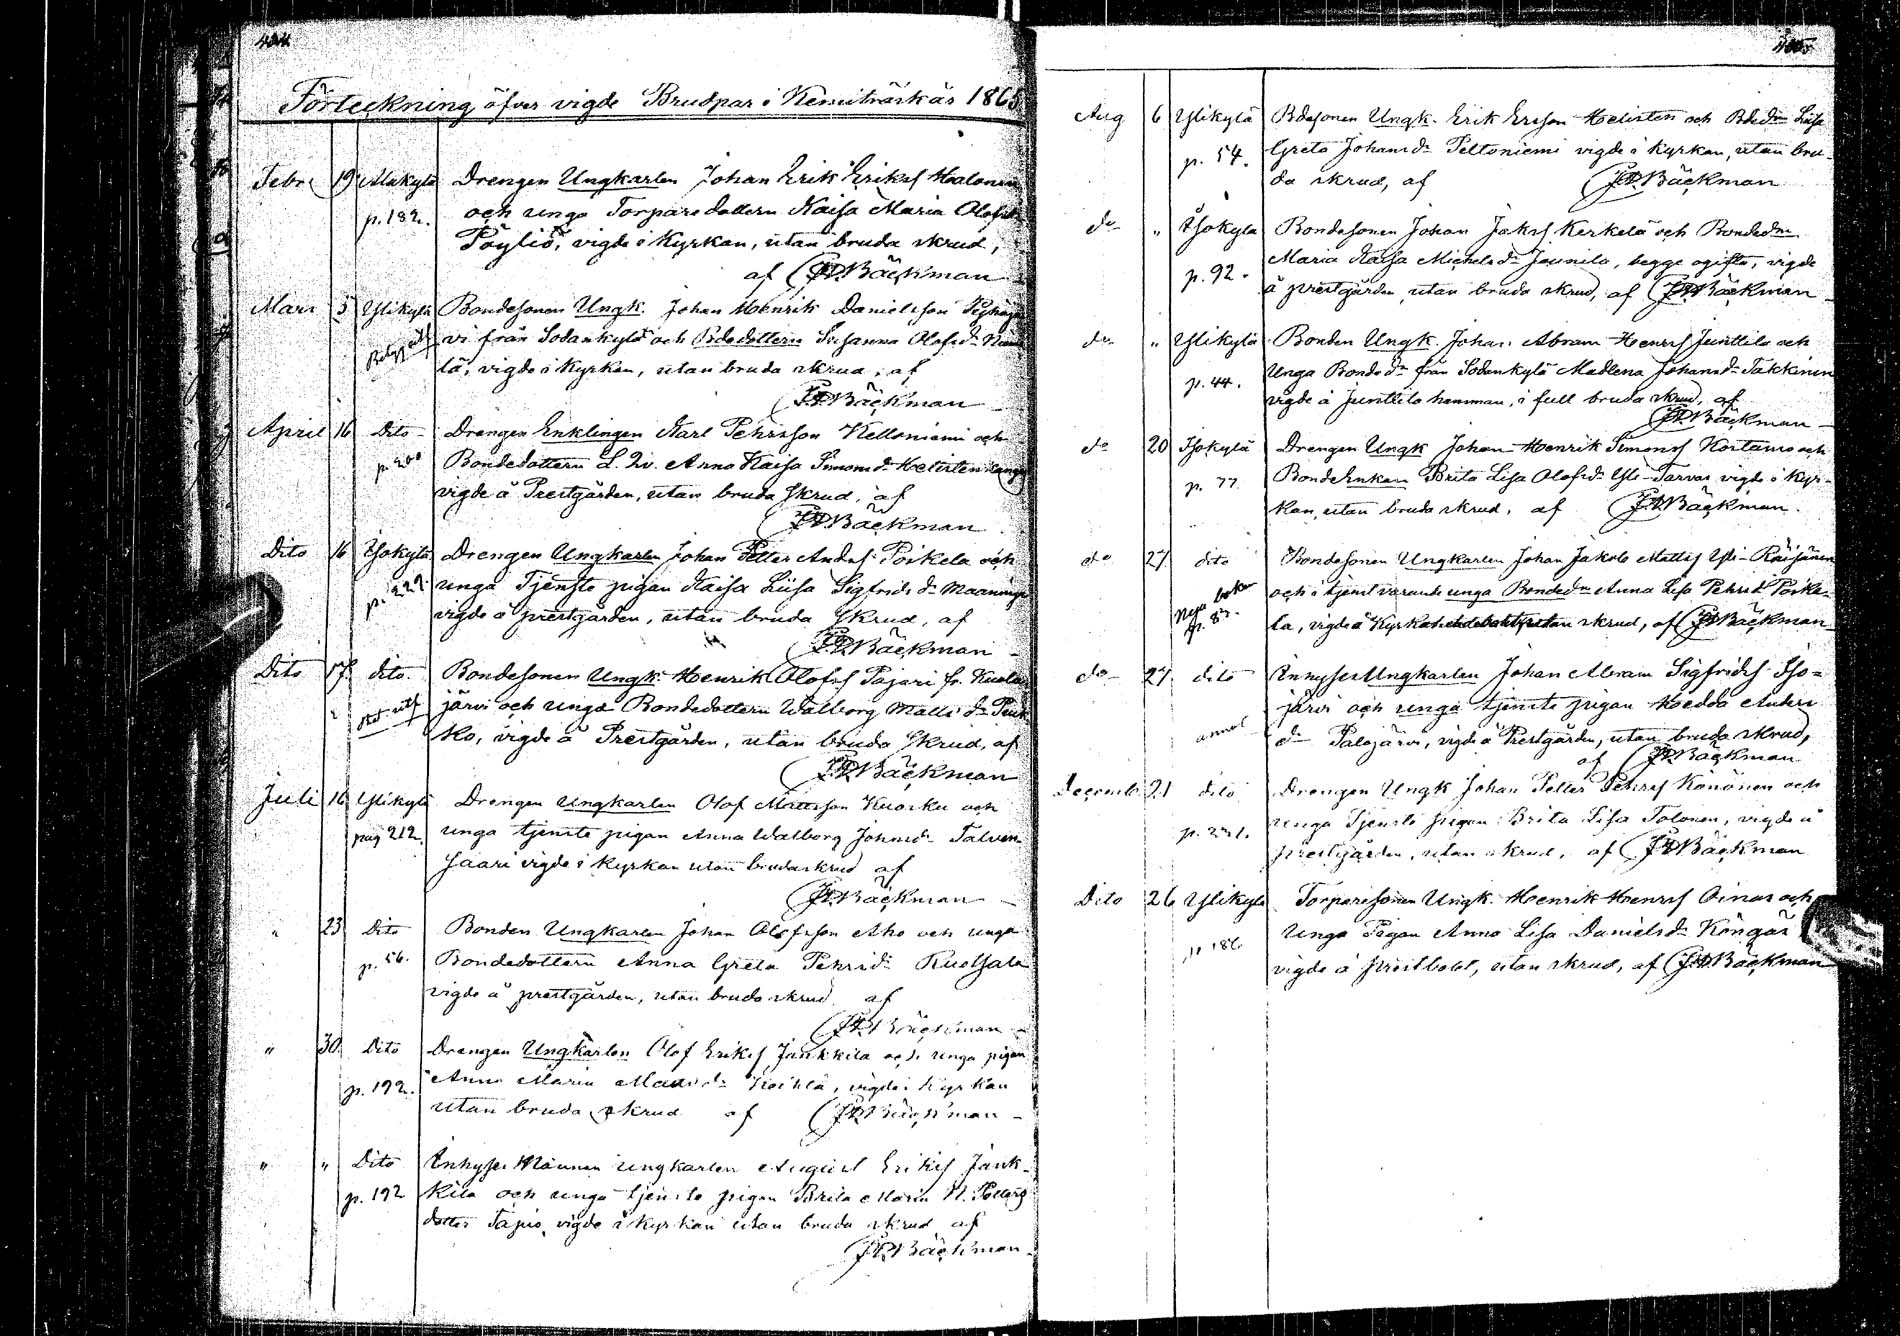 Förteckning öfver vigde Brudpar i Kemiträsk år 1865
Febr 19 Alakylä Drengen Ungkarlen Johan Erik Eriks Halonen
p. 182. och unga Torparedottern Kaisa Maria Olofsdr
Pöyliö, vigde i Kyrkan, utan bruda skrud,
af JW Bäckman
Mars 5 Ylikylä Bondesonen Ungk. Johan Henrik Danielsson
vi från Sodankylä och Bdedottern Susanna Olofsdr
lä, vigde i Kyrkan, utan bruda skrud, af
Bäckman
April 16 Dito Drengen Enklingen Karl Pehrsson Kelloniemi och
p. 200 Bondedottern L. Qv. Anna Kaisa Simonsdr Helisten
vigde å Prestgården, utan bruda skrud, af
Bäckman
Dito 16 Isokylä Drengen Ungkarlen Johan Petter Anders Poikela och
p. 222. unga Tjenste pigan Kaisa Liisa Sigfrids dr Maaninga
vigde å prestgården, utan bruda skrud, af
Bäckman
Dito 17 dito Bondesonen Ungk. Henrik Olofs Pajari fr. Kuola
järvi och unga Bondedottern Walborg Matts dr
ko, vigde å Prestgården, utan bruda skrud, af
Bäckman
Juli 16 Ylikylä Drengen Ungkarlen Olof Mattsson Kuosku och
pag 212. unga tjenste pigan Anna Walborg Johansdr Talven
saari vigde i Kyrkan utan brudaskrud af
Bäckman
" 23 Dito Bonden Ungkarlen Johan Olofsson Aho och unga
p. 56. Bondedottern Anna Greta Pehrsdr Ruotsala
vigde å prestgården, utan bruda skrud af
Bäckman
" 30 Dito Drengen Ungkarlen Olof Eriks Jankkila och unga pigan
p. 192. Anna Maria dr vigde i Kyrkan
utan bruda skrud af Bäckman
" " Dito Inhyses Mannen ungkarlen August Eriks Jank-
p. 192 kila och unga tjenste pigan Brita Maria
dotter Tapio, vigde i kyrkan utan bruda skrud af
Bäckman
Aug 6 Ylikylä Bdesonen Ungk. Erik Ersson Helisten och Bdedtn Lisa
p. 54. Greta Johansdr Peltoniemi vigde i kyrkan, utan bru-
da skrud, af Bäckman
do " Isokylä Bondesonen Johan Jaks Kerkelä och Bondedtn
p. 92. Maria Kaisa Michelsdr Jaunila, begge ogifta, vigde
å prestgården, utan bruda skrud, af Bäckman
do " Ylikylä Bonden Ungk. Johan Abram Henrs Junttila och
p. 44. Unga Bondedr från Sodankylä Madlena Johansdr Takkinen
vigde å Junttila hemman, i full bruda skrud, af
Bäckman
do 20 Isokylä Drengen Ungk Johan Henrik Simons Kostamo och
p. 77. BondeEnkan Brita Lisa Olofsdr Yli-Tarvas vigde i Kyr-
kan, utan bruda skrud, af Bäckman.
do 27 dito Bondesonen Ungkarlen Johan Jakob Matts Yli-Räisänen
Nya boken och i tjenst varande unga Bondedtn Anna Lisa Pehrsd Poike-
p. 83. la, vigde å skrud, af Bäckman
do 27 dito Inhyses Ungkarlen Johan Abram Sigfrids Iso-
järvi och unga tjenste pigan Hedda Anders
dr Palojärvi, vigde å Prestgården, utan bruda skrud,
af Bäckman
Decemb. 21 dito Drengen Ungk Johan Petter Pehrs Könönen och
p. 221. unga Tjenste pigan Brita Lisa Tolonen, vigde å
prestgården, utan skrud, af Bäckman
Dito 26 Ylikylä Torparesonen Ungk. Henrik Henrs Oinas och
p. 186 Unga Pigan Anna Lisa Danielsdr Köngäs
vigde å prestbolet, utan skrud, af Bäckman